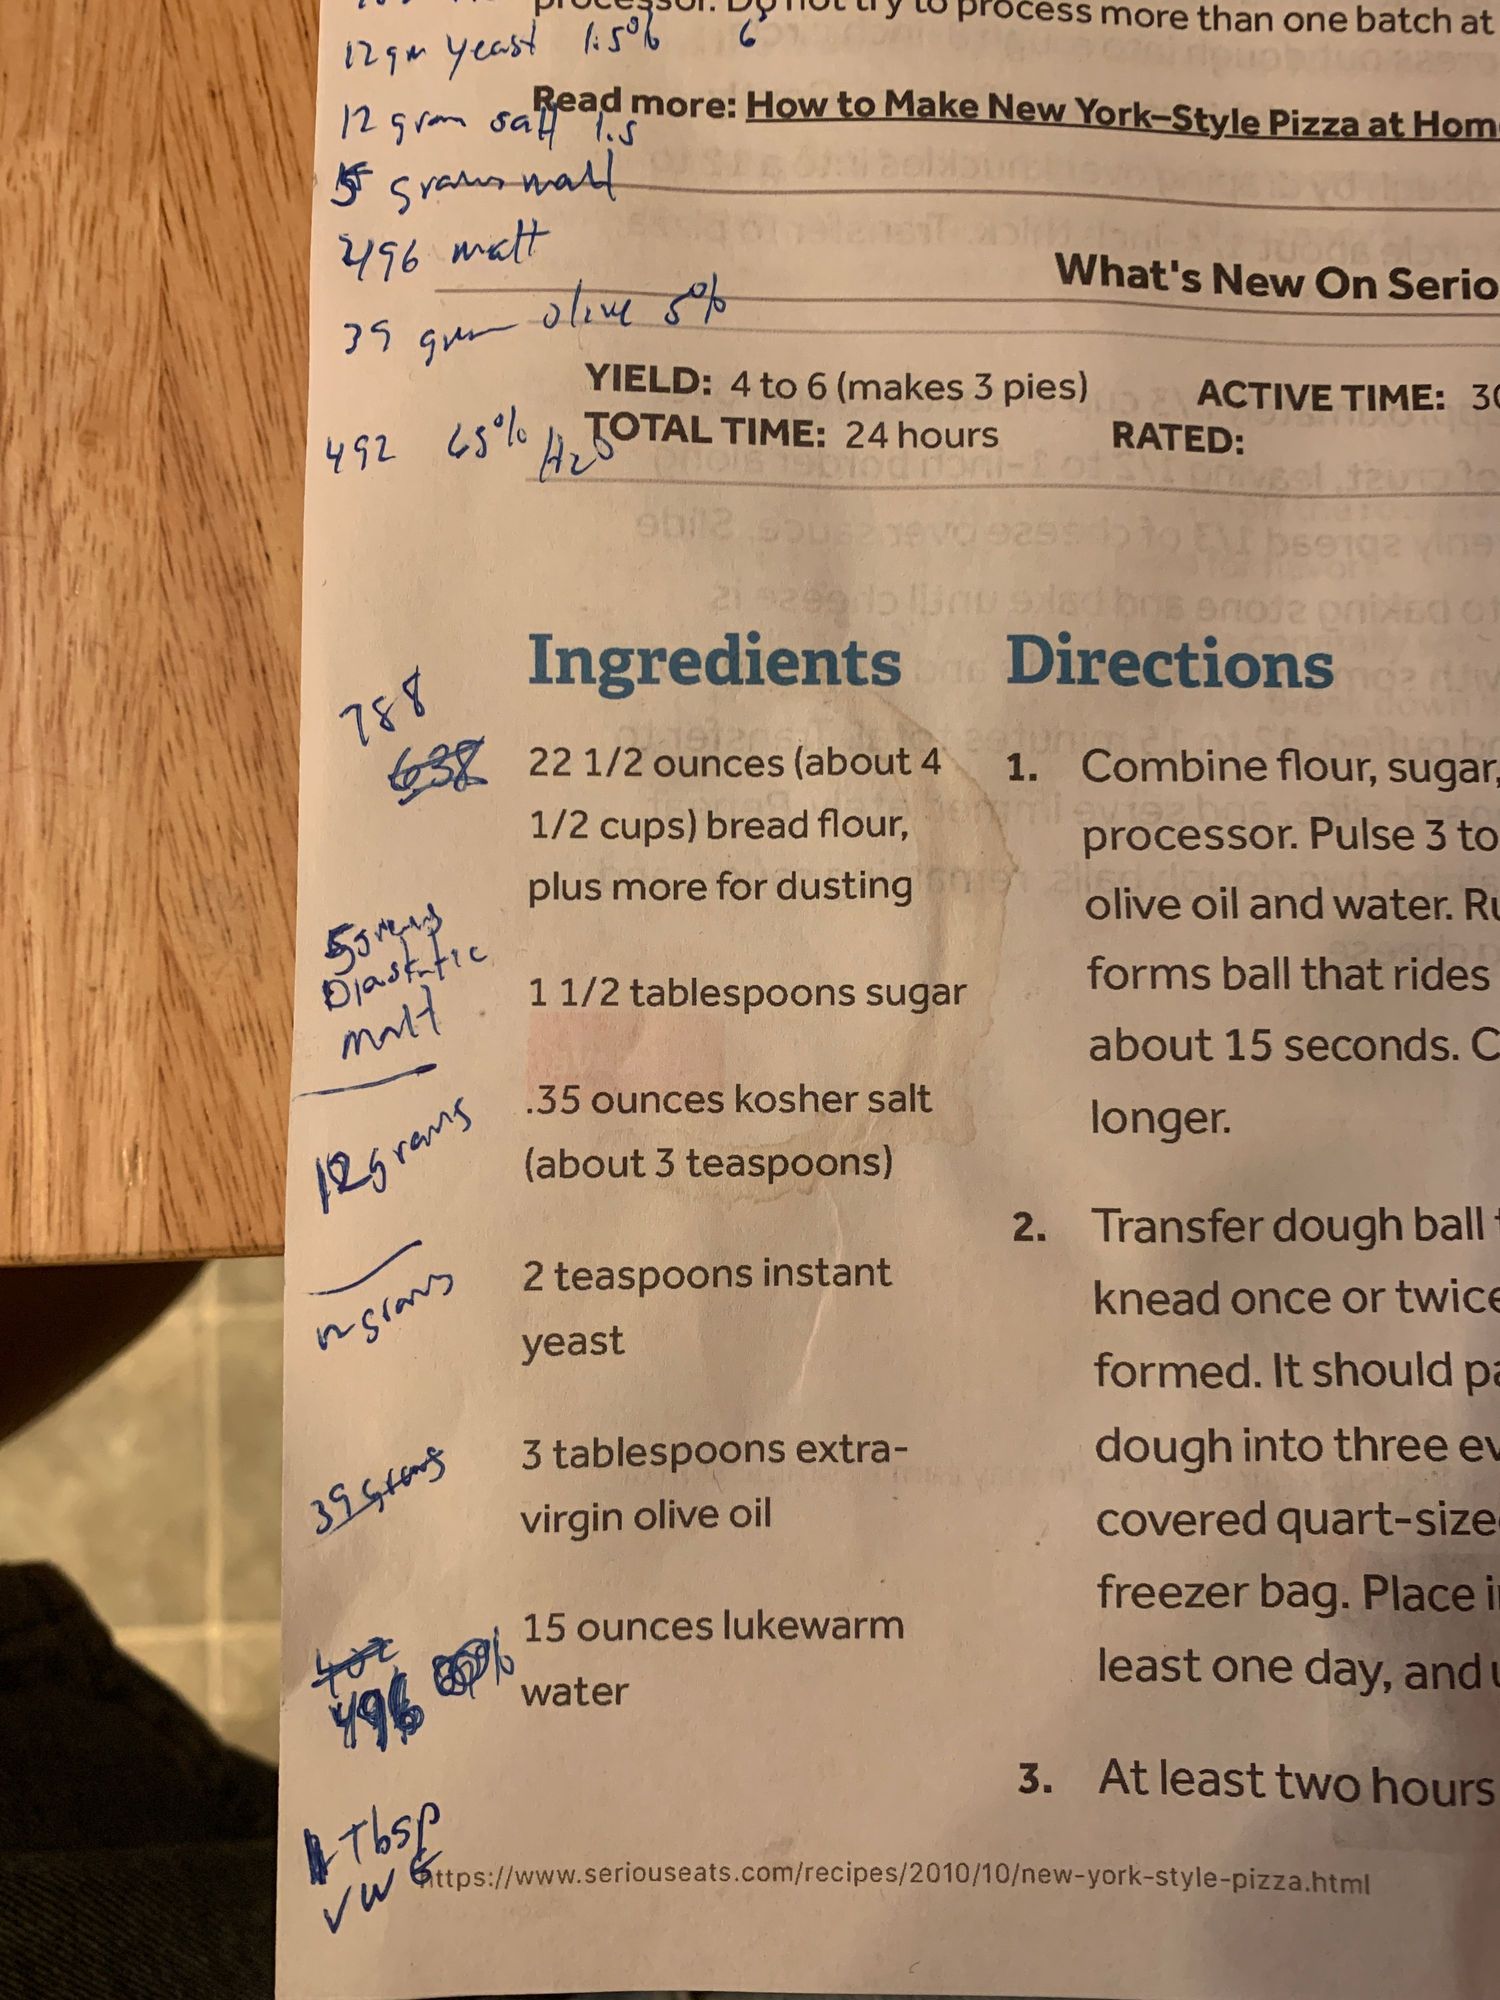 processor. Do not try to process more than one batch at
12 gm yeast 1.5% 6
Read more: How to Make New York-Style Pizza at Hom
12 gram salt 1.5
5 grams malt
496 malt
What's New On Serio
39 gram olive 5%
YIELD: 4 to 6 (makes 3 pies) ACTIVE TIME: 30
TOTAL TIME: 24 hours RATED:
492 65% H2O
Ingredients
788
638
22 1/2 ounces (about 4
1/2 cups) bread flour,
plus more for dusting
5 grams
Diastatic
malt
1 1/2 tablespoons sugar
12 grams
.35 ounces kosher salt
(about 3 teaspoons)
12 grams
2 teaspoons instant
yeast
39 grams
3 tablespoons extra-
virgin olive oil
496
15 ounces lukewarm
water
1 Tbsp
VWG
Directions
1. Combine flour, sugar,
processor. Pulse 3 to
olive oil and water. Ru
forms ball that rides
about 15 seconds. C
longer.
2. Transfer dough ball t
knead once or twice
formed. It should pa
dough into three ev
covered quart-size
freezer bag. Place i
least one day, and u
3. At least two hours
https://www.seriouseats.com/recipes/2010/10/new-york-style-pizza.html